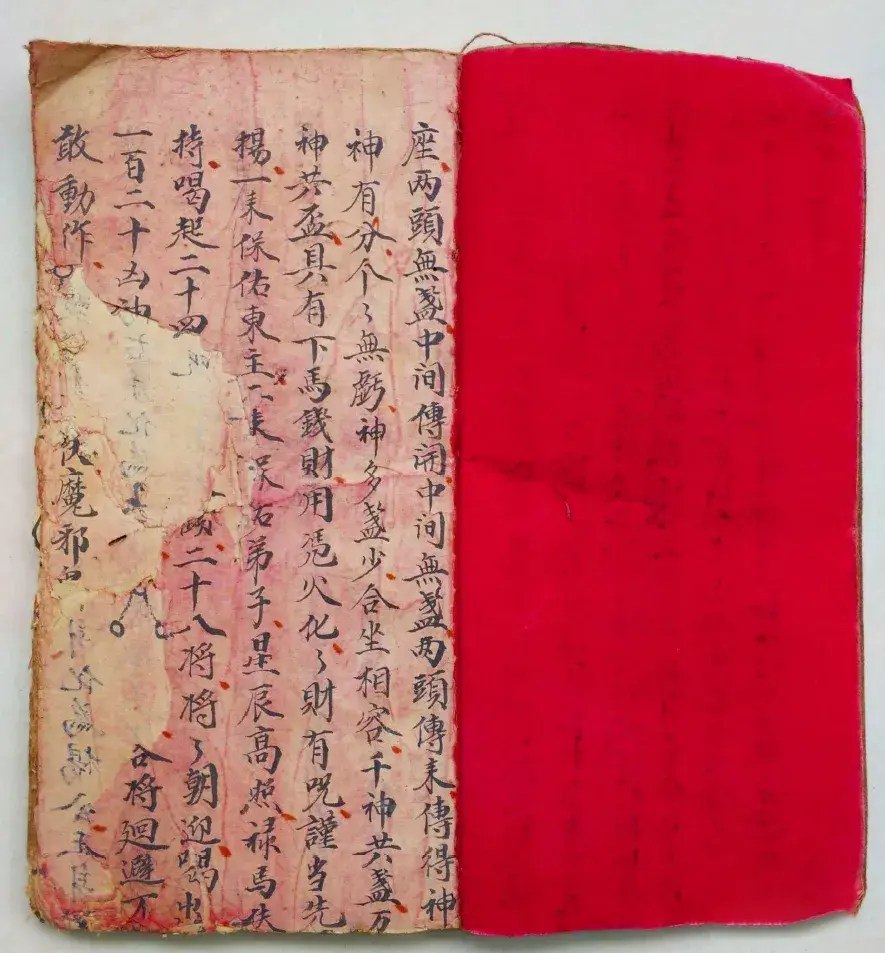 座两頭無盞中间傳開中间無盞两頭傳来傳得神
神有分个々無虧神多盞少合坐相容千神共盞万
神共盃具有下馬錢財用凴火化々財有呪謹当先
揚一来保佑東主一来保佑弟子星辰高照禄馬扶
持喝起二十四 二十八将将々朝迎喝出
一百二十凶神 合将廻避不
敢動作 妖魔邪